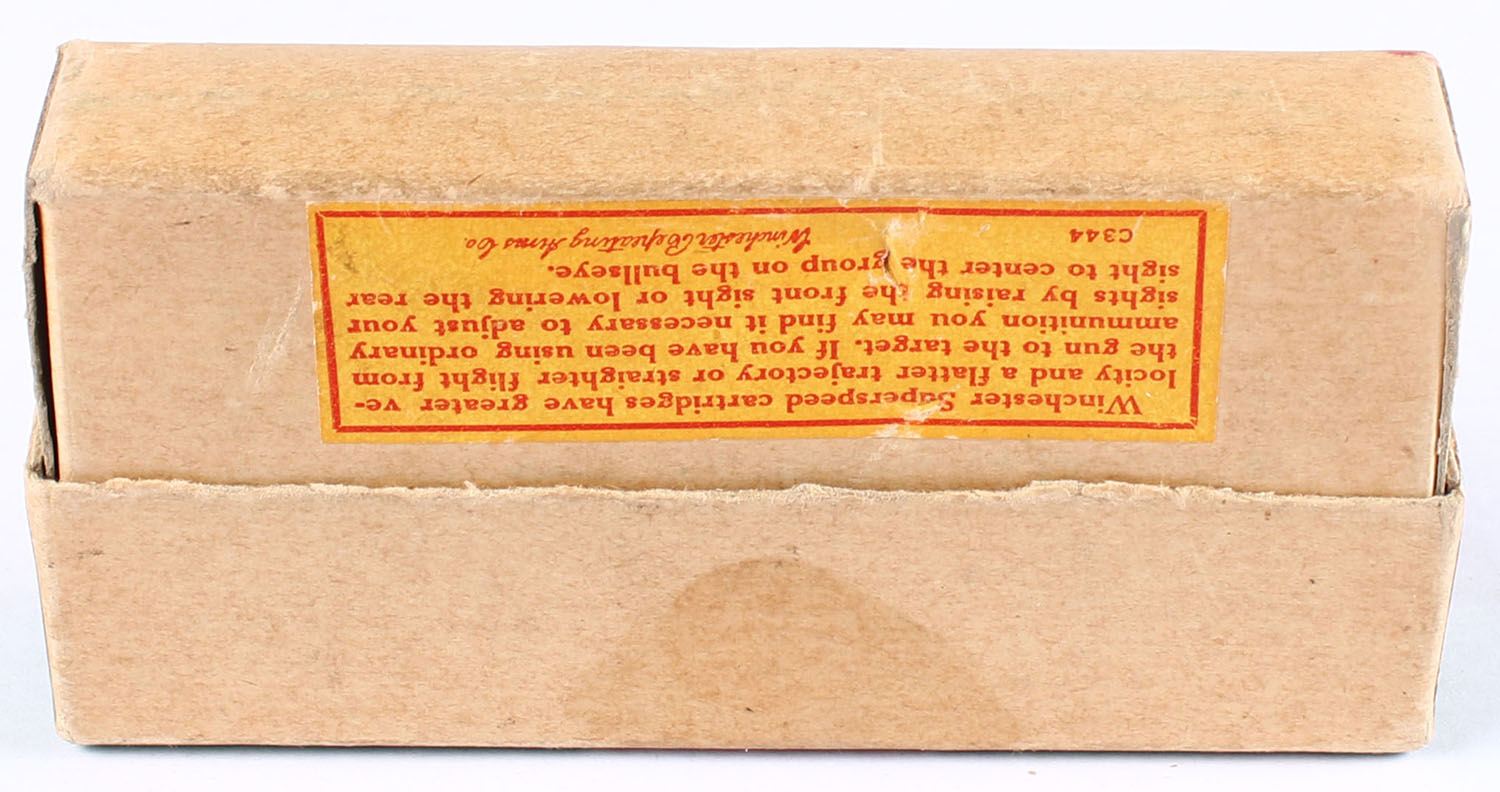 Winchester Superspeed cartridges have greater ve-
locity and a flatter trajectory or straighter flight from
the gun to the target. If you have been using ordinary
ammunition you may find it necessary to adjust your
sights by raising the front sight or lowering the rear
sight to center the group on the bullseye.
C344 Winchester Repeating Arms Co.